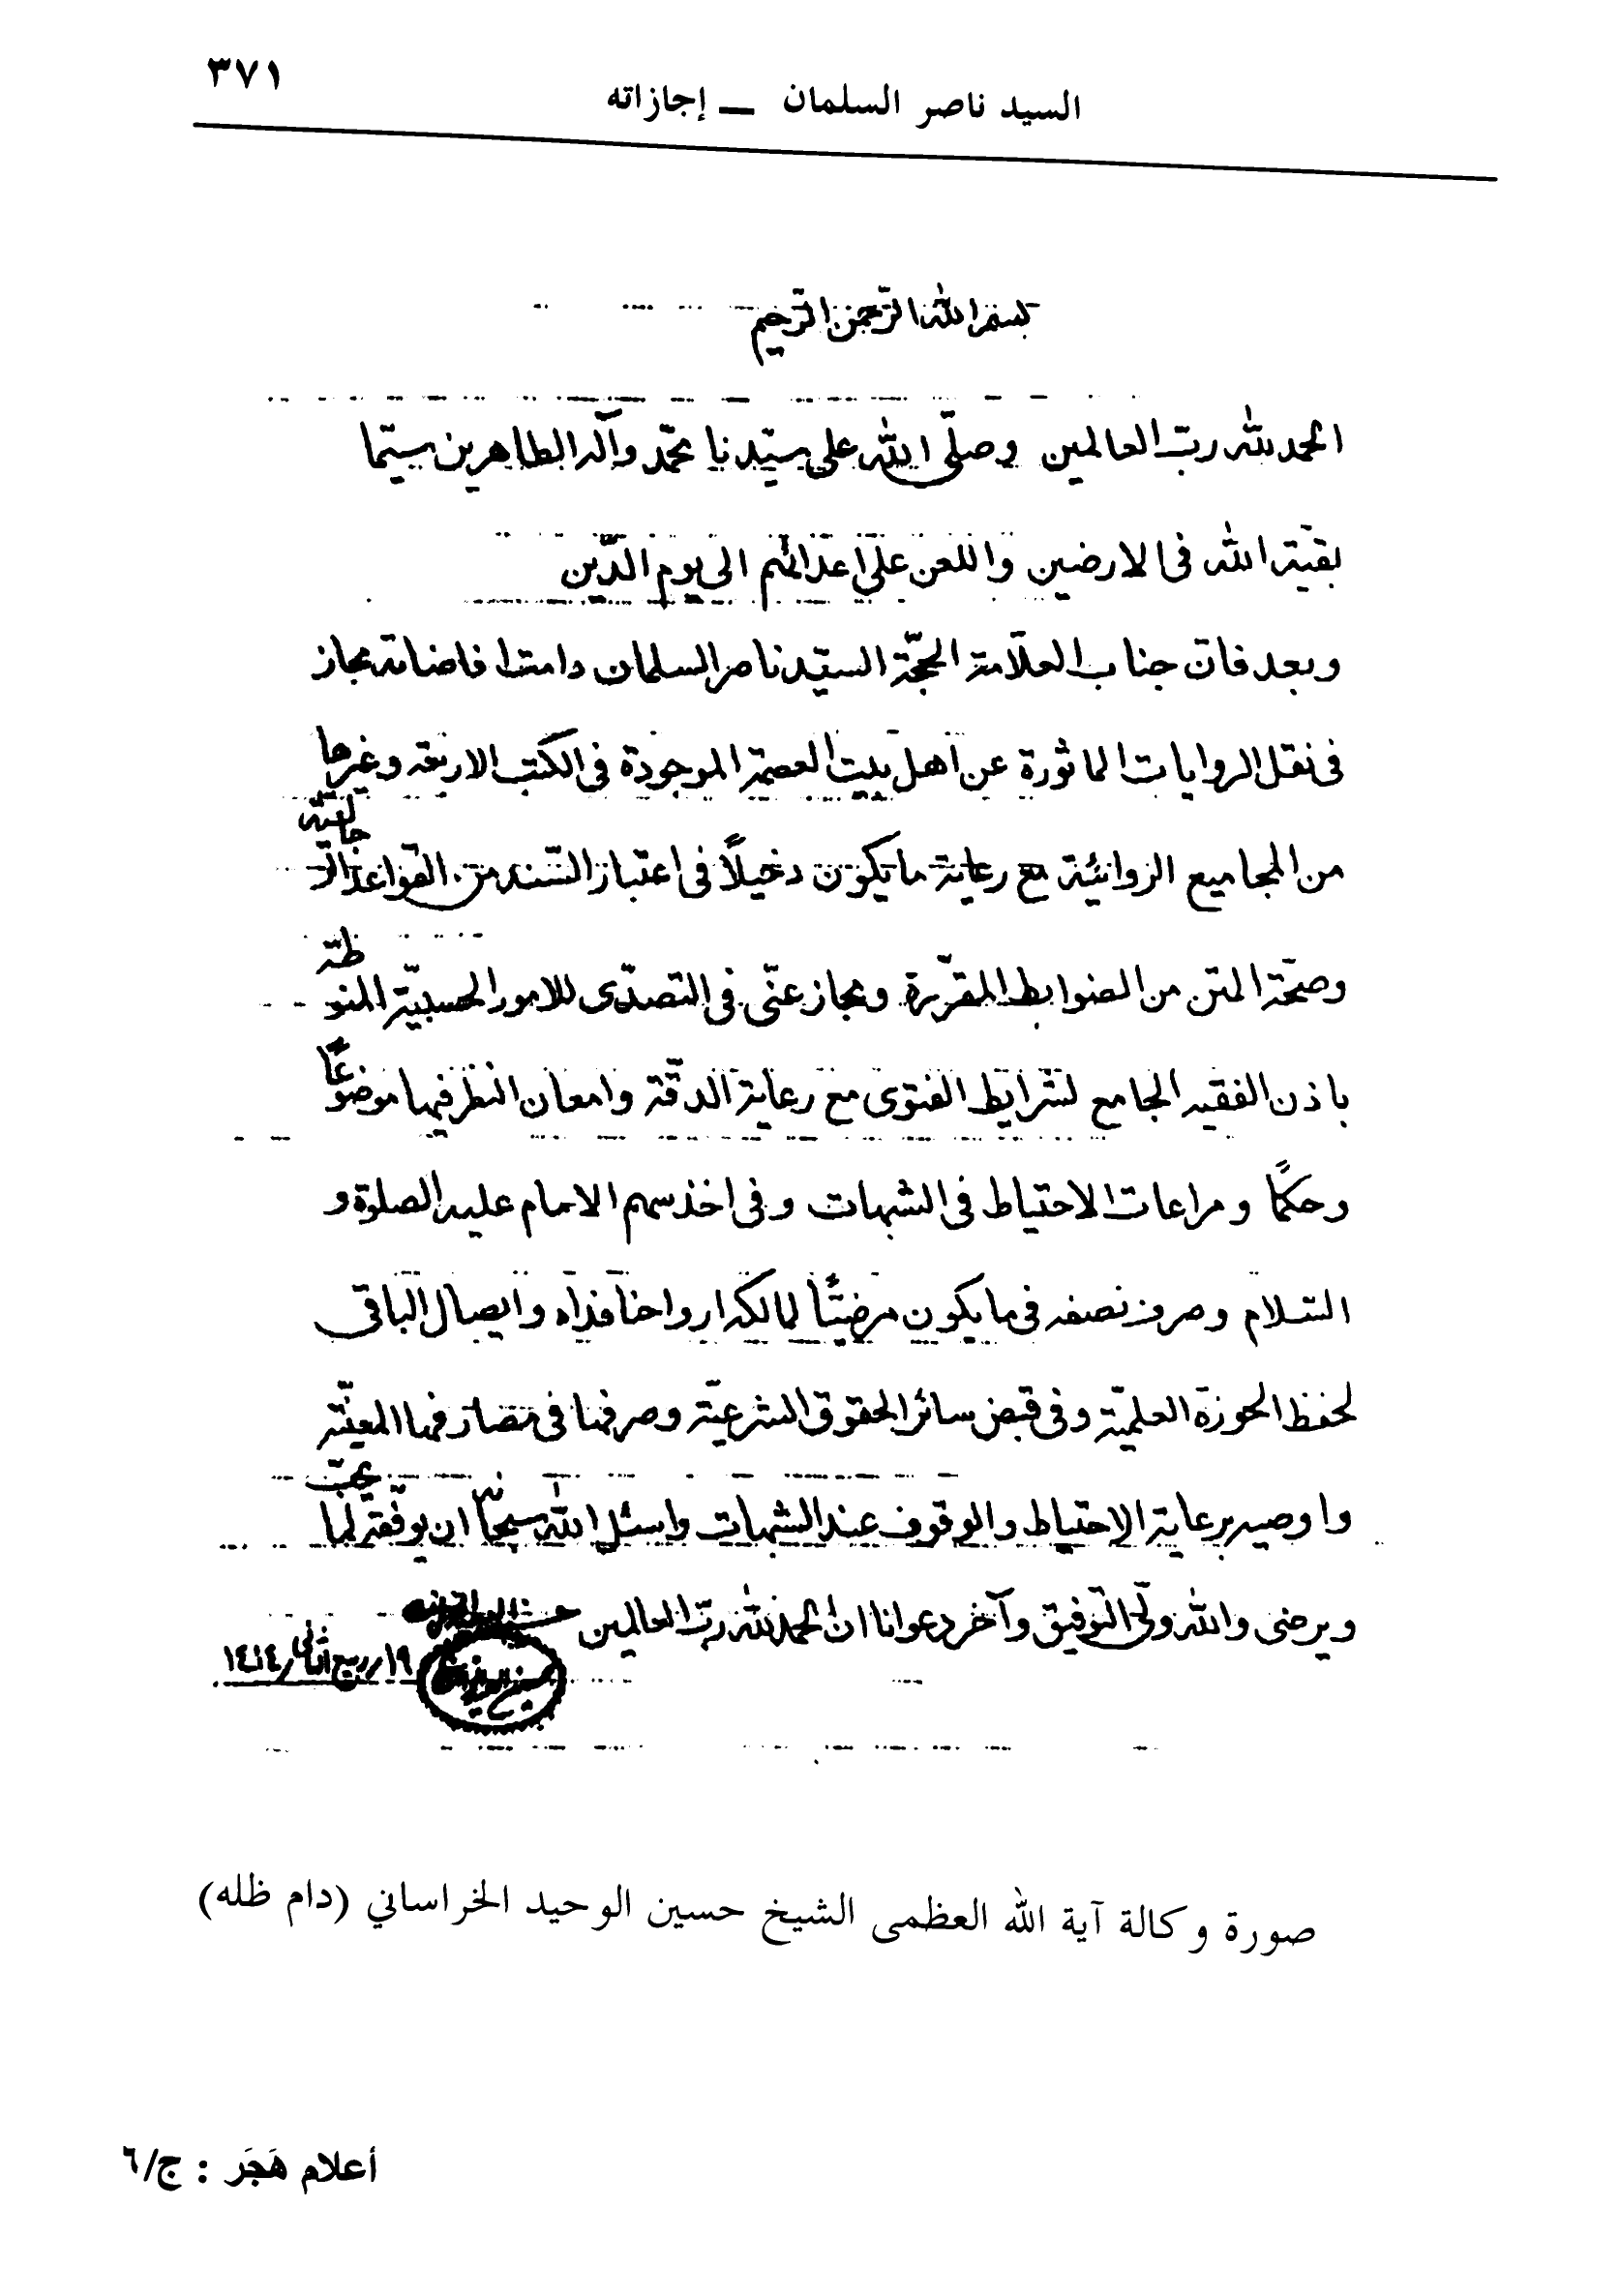 ٣٧١
السيد ناصر السلمان — إجازاته
بسم الله الرّحمن الرّحيم
الحمد لله ربّ العالمين وصلّى الله على سيّدنا محمّد وآله الطاهرين سيّما
بقيّة الله فى الارضين واللعن على اعدائهم الى يوم الدّين
وبعد فانّ جناب العلّامة الحجّة السيّد ناصر السلمان دامت افاضاته مجاز
فى نقل الروايات الماثورة عن اهل بيت العصمة الموجودة فى الكتب الاربعة وغيرها
من المجاميع الروائيّة مع رعاية ما يكون دخيلاً فى اعتبار السّند من القواعد الرجاليّة
وصحّة المتن من الضوابط المقرّرة ومجاز عنّى فى التصدّى للامور الحسبيّة المنوطة
باذن الفقيه الجامع لشرايط الفتوى مع رعاية الدقّة وامعان النظر فيها موضوعاً
وحكماً ومراعات الاحتياط فى الشبهات وفى اخذ سهم الامام عليه الصلوة و
السّلام وصرف نصفه فى ما يكون مرضيّاً لمالكه ارواحنا فداه وايصال الباقى
لحفظ الحوزة العلميّة وفى قبض سائر الحقوق الشرعيّة وصرفها فى مصارفها المعيّنة
واوصيه برعاية الاحتياط والوقوف عند الشبهات واسئل الله سبحانه ان يوفّقه لما يحبّ
ويرضى والله ولىّ التوفيق وآخر دعوانا ان الحمد لله ربّ العالمين
١٩/ربيع الثانى/١٤١٤
صورة وكالة آية الله العظمى الشيخ حسين الوحيد الخراساني (دام ظله)
أعلام هَجَر : ج/٦